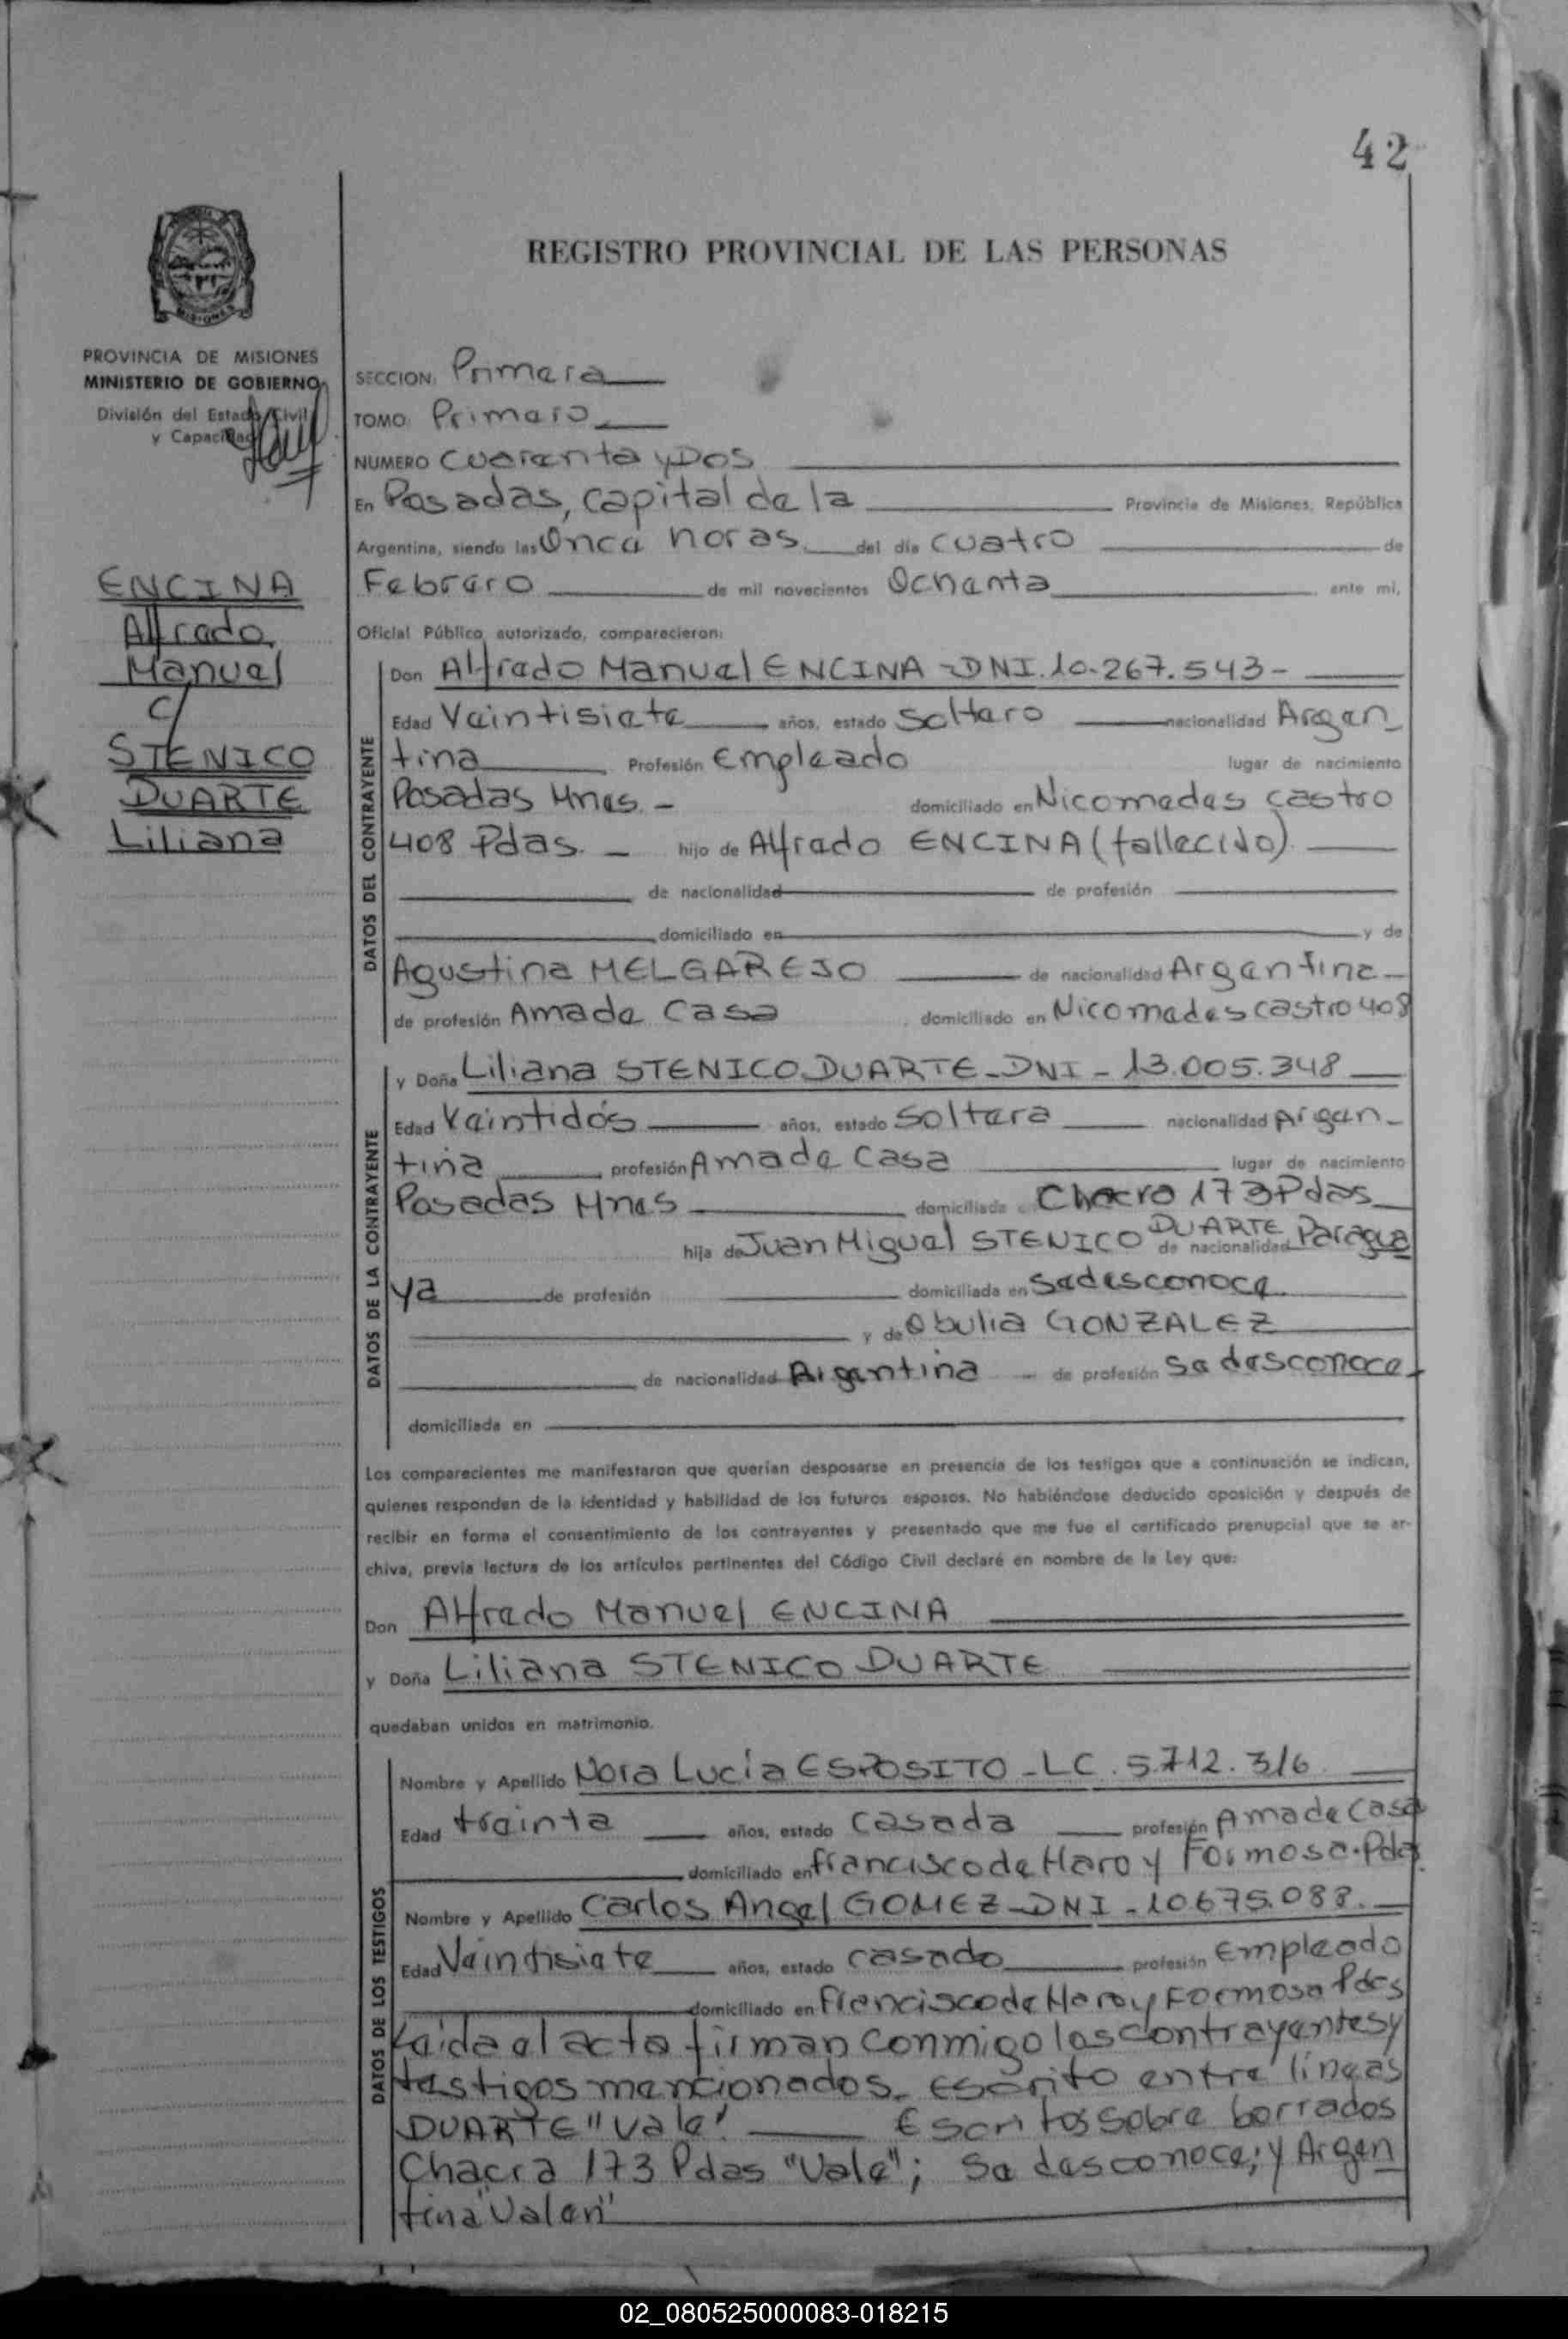 42
REGISTRO PROVINCIAL DE LAS PERSONAS
MISIONES
PROVINCIA DE MISIONES
MINISTERIO DE GOBIERNO
División del Estado Civil
y Capacidad
ENCINA
Alfredo
Manuel
c/
STENICO
DUARTE
Liliana
SECCION: Primera
TOMO: Primero
NUMERO Cuarenta y Dos
En Posadas, capital de la Provincia de Misiones, República
Argentina, siendo las Once horas del día cuatro de
Febrero de mil novecientos Ochenta, ante mí,
Oficial Público autorizado, comparecieron:
DATOS DEL CONTRAYENTE
Don Alfredo Manuel ENCINA - DNI. 10.267.543 -
Edad Veintisiete años, estado soltero nacionalidad Argen
tina Profesión Empleado lugar de nacimiento
Posadas Mnes. - domiciliado en Nicomedes castro
408 Pdas. - hijo de Alfredo ENCINA (fallecido).
de nacionalidad de profesión
domiciliado en y de
Agustina MELGAREJO de nacionalidad Argentina
de profesión Ama de Casa domiciliado en Nicomedes castro 408
DATOS DE LA CONTRAYENTE
y Doña Liliana STENICO DUARTE - DNI - 13.005.348
Edad Veintidós años, estado soltera nacionalidad Argen-
tina profesión Ama de Casa lugar de nacimiento
Posadas Mnes domiciliada en Chacra 173 Pdas
hija de Juan Miguel STENICO DUARTE de nacionalidad Paragua
ya de profesión domiciliada en Se desconoce
y de Obulia GONZALEZ
de nacionalidad Argentina - de profesión Se desconoce
domiciliada en
Los comparecientes me manifestaron que querían desposarse en presencia de los testigos que a continuación se indican,
quienes responden de la identidad y habilidad de los futuros esposos. No habiéndose deducido oposición y después de
recibir en forma el consentimiento de los contrayentes y presentado que me fue el certificado prenupcial que se ar-
chiva, previa lectura de los artículos pertinentes del Código Civil declaré en nombre de la Ley que:
Don Alfredo Manuel ENCINA
y Doña Liliana STENICO DUARTE
quedaban unidos en matrimonio.
DATOS DE LOS TESTIGOS
Nombre y Apellido Nora Lucía ESPOSITO - LC. 5.712.316
Edad treinta años, estado casada profesión Ama de Casa
domiciliado en Francisco de Haro y Formosa. Pdas.
Nombre y Apellido Carlos Angel GOMEZ - DNI - 10.675.088.
Edad Veintisiete años, estado casado profesión Empleado
domiciliado en Francisco de Haro y Formosa Pdas
Leida el acta firman conmigo los contrayentes y
testigos mencionados. Escrito entre líneas
DUARTE "vale". Escritos sobre borrados
Chacra 173 Pdas "Vale"; Se desconoce; y Argen
tina "Valen"
02_080525000083-018215